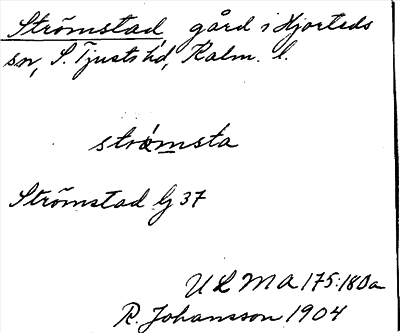 Strömstad gård i Hjorteds
sn, S. Tjusts hd, Kalm. l.
strømsta
Strömstad Gj 37
ULMA 175:18Da
R. Johansson 1904